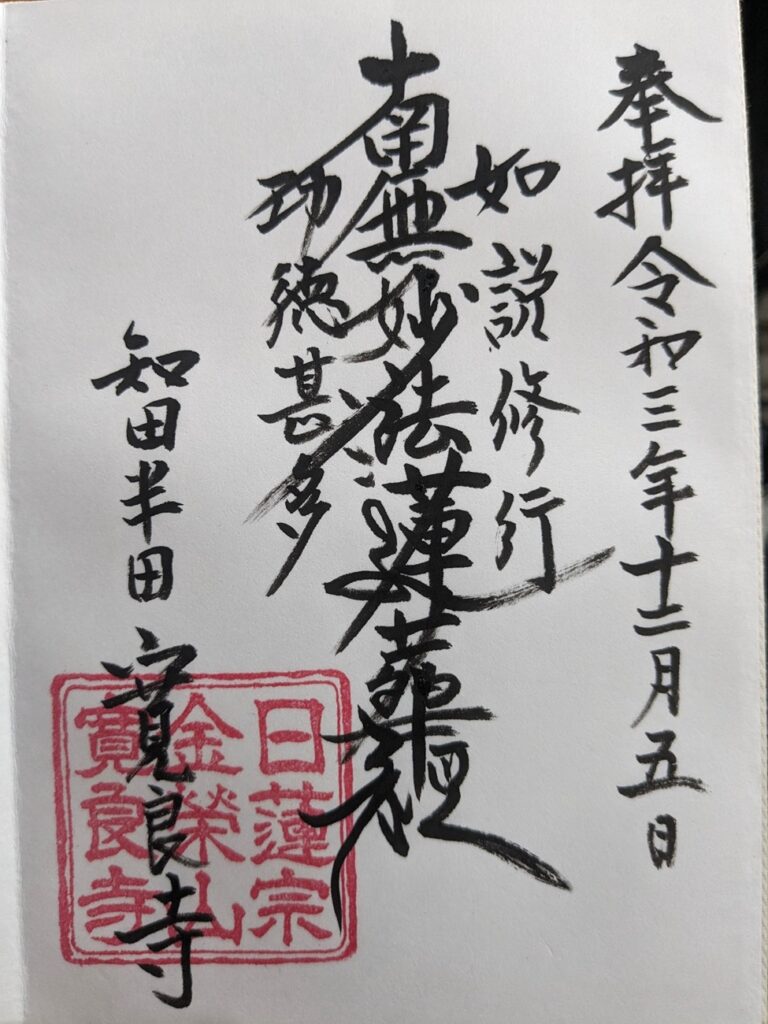 奉拝令和三年十二月五日
如説修行
南無妙法蓮華経
功徳甚多
知田半田 寛良寺
日蓮宗
金榮山
寛良寺